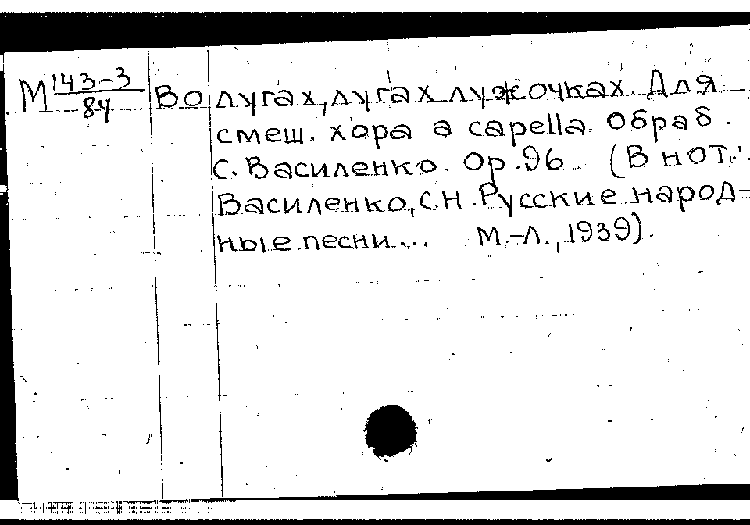 М 143-3/84 Во лугах, лугах лужочках. Для
смеш. хора a capella. Обраб.
С. Василенко. Ор. 96. (В нот.:
Василенко, С.Н. Русские народ-
ные песни... М.-Л., 1939).